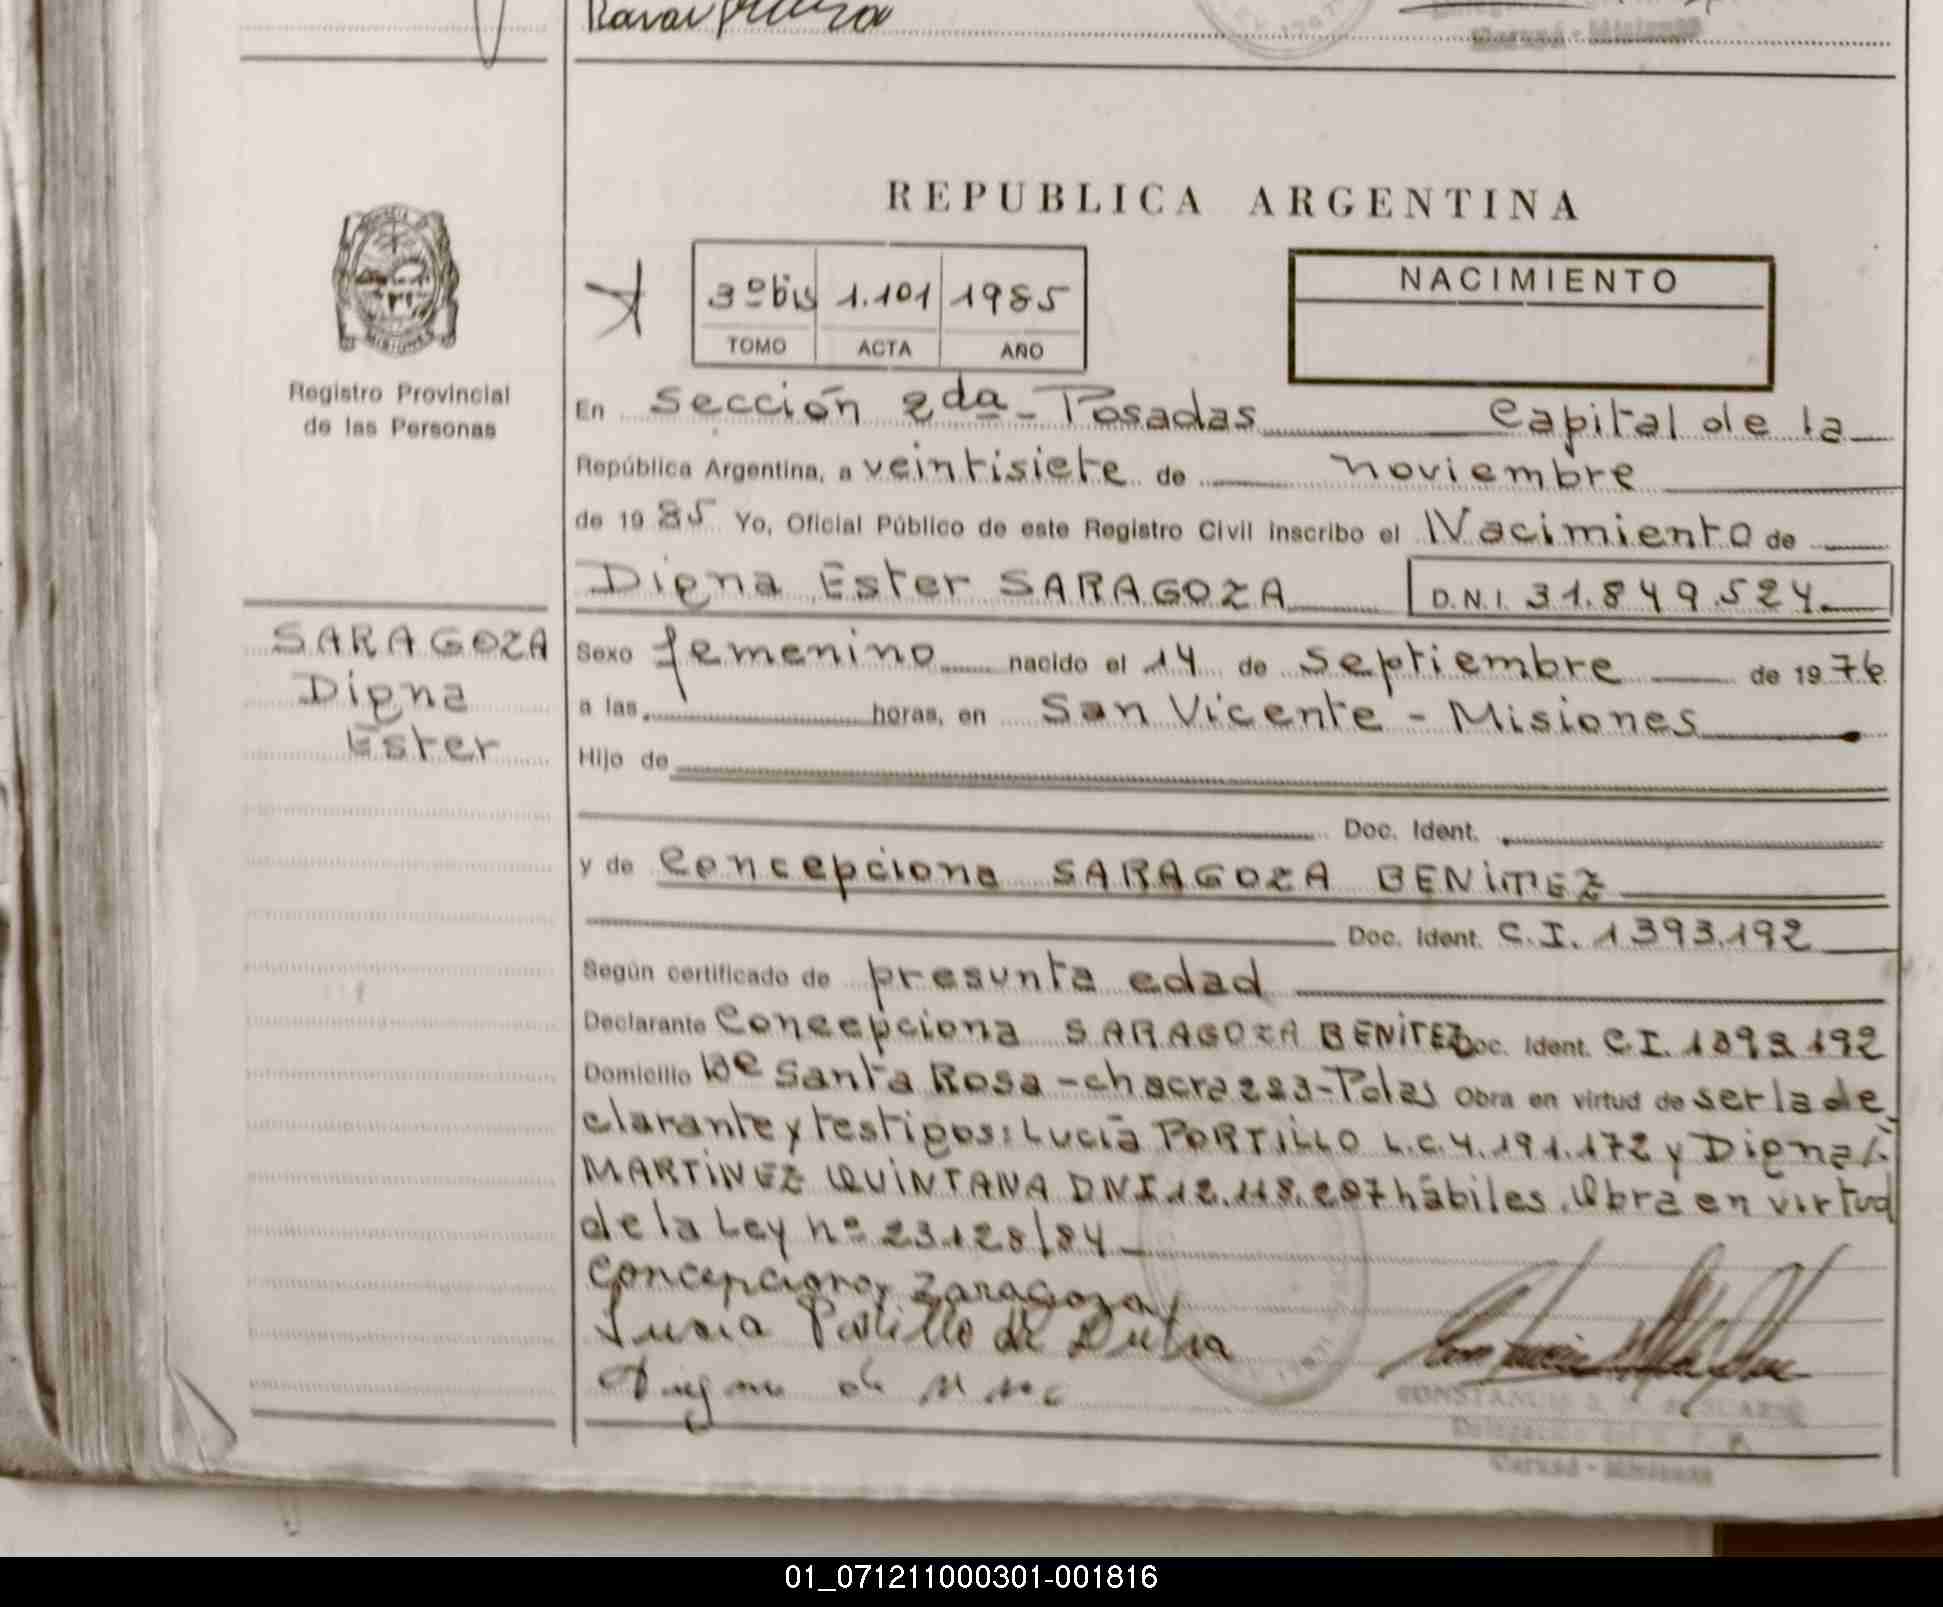 REPUBLICA ARGENTINA
3º bis 1.101 1985
TOMO ACTA AÑO
NACIMIENTO
MISIONES
Registro Provincial
de las Personas
En Sección 2da - Posadas Capital de la
República Argentina, a veintisiete de noviembre
de 1985 Yo, Oficial Público de este Registro Civil inscribo el Nacimiento de
Digna Ester SARAGOZA D.N.I. 31.849.524
SARAGOZA
Digna
Ester
Sexo femenino nacido el 14 de septiembre de 1976
a las horas, en San Vicente - Misiones
Hijo de
Doc. Ident.
y de Concepciona SARAGOZA BENITEZ
Doc. Ident. C.I. 1393.192
Según certificado de presunta edad
Declarante Concepciona SARAGOZA BENITEZ Doc. Ident. C.I. 1393.192
Domicilio Bº Santa Rosa - chacra 223 - Pdas Obra en virtud de ser la de
clarante y testigos: Lucia PORTILLO L.C. 4.191.172 y Digna
MARTINEZ QUINTANA DNI 12.118.207 hábiles. Obra en virtud
de la Ley nº 23.128/84
Concepciona Zaragoza
Lucia Portillo de Dutra
CONSTANCIO
Delegación
Garupá - Misiones
01_071211000301-001816